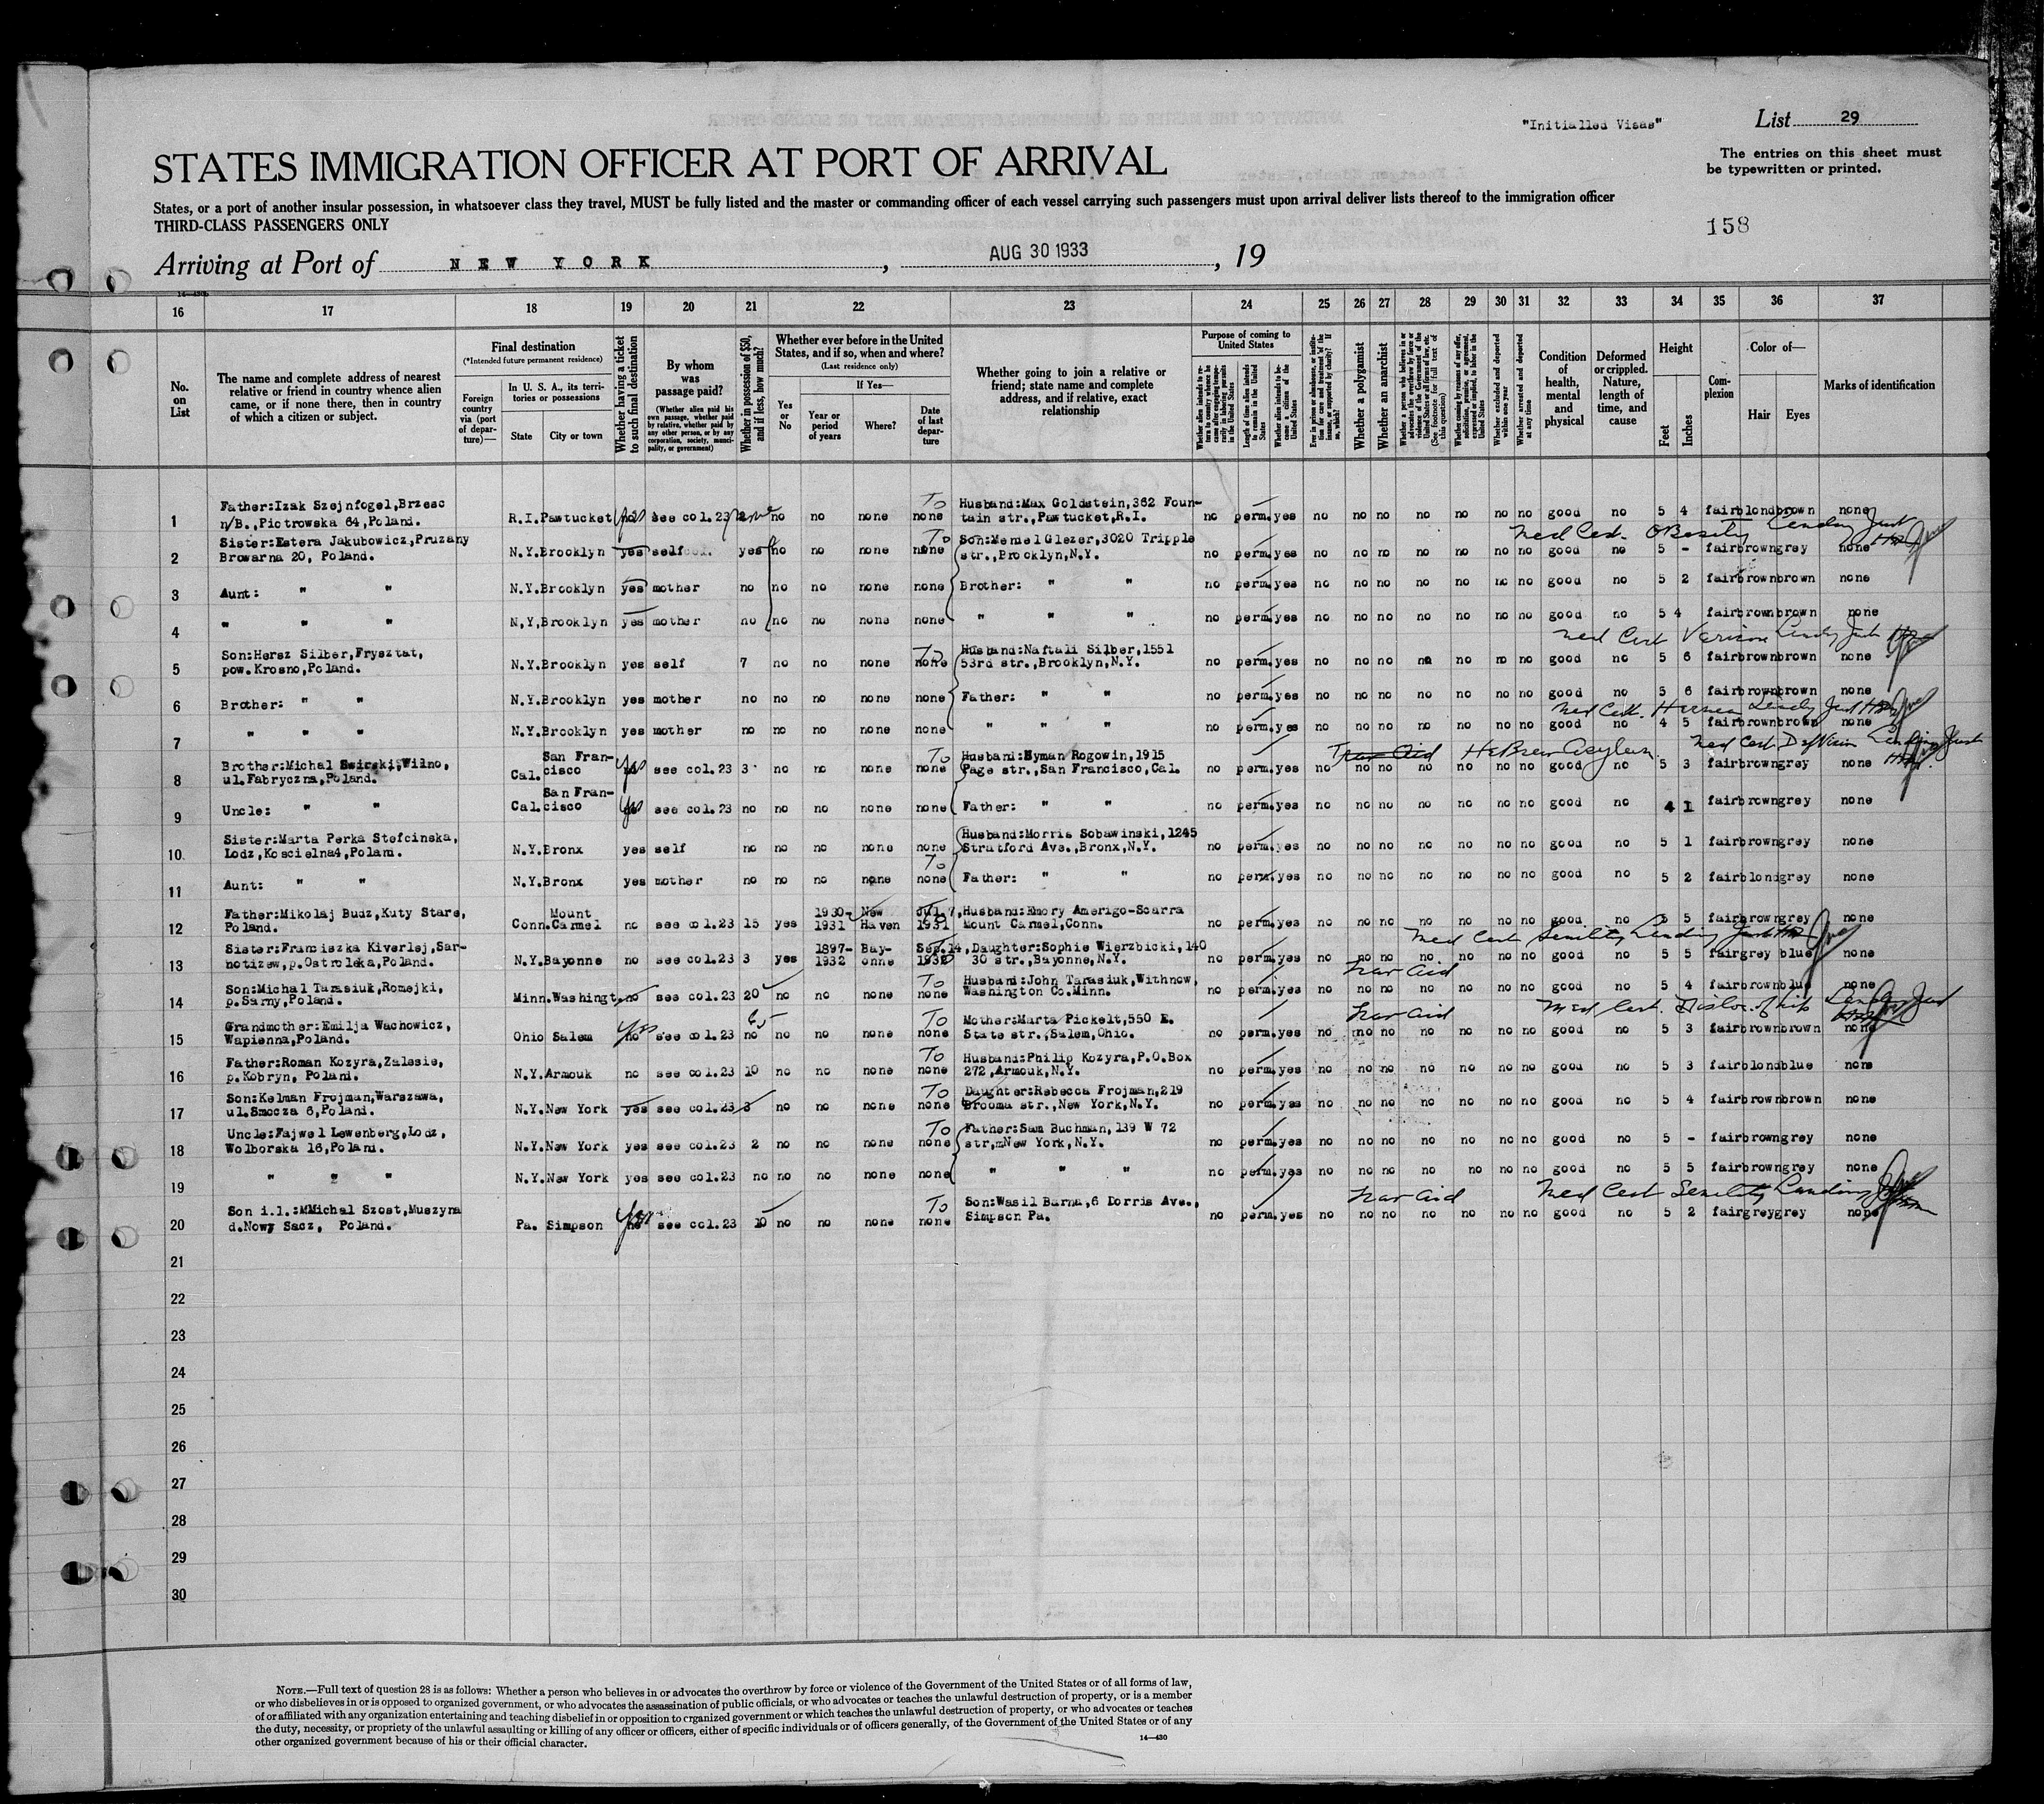 "Initialled Visas"
List 29
STATES IMMIGRATION OFFICER AT PORT OF ARRIVAL
The entries on this sheet must
be typewritten or printed.
States, or a port of another insular possession, in whatsoever class they travel, MUST be fully listed and the master or commanding officer of each vessel carrying such passengers must upon arrival deliver lists thereof to the immigration officer
THIRD-CLASS PASSENGERS ONLY
158
Arriving at Port of NEW YORK, AUG 30 1933, 19
16 17 18 19 20 21 22 23 24 25 26 27 28 29 30 31 32 33 34 35 36 37
No. on List
The name and complete address of nearest relative or friend in country whence alien came, or if none there, then in country of which a citizen or subject.
Final destination
(*Intended future permanent residence)
Foreign country via (port of departure)—
In U. S. A., its territories or possessions
State
City or town
Whether having a ticket to such final destination
By whom was passage paid?
(Whether alien paid his own passage, whether paid by relative, whether paid by any other person, or by any corporation, society, municipality, or government)
Whether in possession of $50, and if less, how much?
Whether ever before in the United States, and if so, when and where?
(Last residence only)
If Yes—
Yes or No
Year or period of years
Where?
Date of last departure
Whether going to join a relative or friend; state name and complete address, and if relative, exact relationship
Purpose of coming to United States
Length of time alien intends to remain in the United States
Whether alien intends to become a citizen of the United States
Whether a polygamist
Whether an anarchist
Whether excluded and deported within one year
Whether arrested and deported at any time
Condition of health, mental and physical
Deformed or crippled. Nature, length of time, and cause
Height
Feet
Inches
Complexion
Color of—
Hair
Eyes
Marks of identification
1 Father:Izak Szejnfogel,Brzesc n/B.,Piotrowska 64,Poland. R.I. Pawtucket see col.23 no no none To none Husband:Max Goldstein,362 Fountain str.,Pawtucket,R.I. no perm. yes no no no no no no no good no 5 4 fair blond brown none
Med Cert. Obesity
2 Sister:Estera Jakubowicz,Pruzany Browarna 20, Poland. N.Y. Brooklyn yes self yes no no none To none Son:Mendel Glezer,3020 Tripple str.,Brooklyn,N.Y. no perm. yes no no no no no no no good no 5 - fair brown grey none
3 Aunt: " " N.Y. Brooklyn yes mother no no no none none Brother: " " no perm. yes no no no no no no no good no 5 2 fair brown brown none
4 " " " N,Y, Brooklyn yes mother no no no none none " " " no perm. yes no no no no no no no good no 5 4 fair brown brown none
Med Cert
5 Son:Hersz Silber,Frysztat, pow.Krosno,Poland. N.Y. Brooklyn yes self 7 no no none To none Husband:Naftali Silber,1551 53rd str.,Brooklyn,N.Y. no perm. yes no no no no no no no good no 5 6 fair brown brown none
6 Brother: " " N.Y. Brooklyn yes mother no no no none none Father: " " no perm. yes no no no no no no no good no 5 6 fair brown brown none
Med Cert. Hernia
7 " " " N.Y. Brooklyn yes mother no no no none none " " " no perm. yes no no no no no no no good no 4 5 fair brown brown none
Hebrew Asylum Med Cert Def Vision
8 Brother:Michal Swirski,Wilno, ul.Fabryczna,Poland. Cal. San Francisco yes see col.23 3 no no none To none Husband:Hyman Rogowin,1915 Page str.,San Francisco,Cal. no perm. yes no no no no no no no good no 5 3 fair brown grey none
9 Uncle: " " Cal. San Francisco yes see col.23 no no no none none Father: " " no perm. yes no no no no no no no good no 4 1 fair brown grey none
10 Sister:Marta Perka Stefcinska, Lodz,Koscielna4,Poland. N.Y. Bronx yes self no no no none none Husband:Morris Sobawinski,1245 Stratford Ave.,Bronx,N.Y. no perm. yes no no no no no no no good no 5 1 fair brown grey none
11 Aunt: " " N.Y. Bronx yes mother no no no none To none Father: " " no perm. yes no no no no no no no good no 5 2 fair blond grey none
12 Father:Mikolaj Budz,Kuty Stare, Poland. Conn. Mount Carmel no see col.23 15 yes 1930-1931 New Haven Jul.7, 1931 Husband:Emory Amerigo-Scarra Mount Carmel,Conn. no perm. yes no no no no no no no good no 5 5 fair brown grey none
Med Cert Senility
13 Sister:Franciszka Kiverlej,Sarnotizew,p.Ostroleka,Poland. N.Y. Bayonne no see col.23 3 yes 1897-1932 Bayonne Sep.14, 1932 Daughter:Sophie Wierzbicki,140 30 str.,Bayonne,N.Y. no perm. yes no no no no no no no good no 5 5 fair grey blue none
Trav Aid
14 Son:Michal Tarasiuk,Romejki, p.Sarny,Poland. Minn. Washingt. no see col.23 20 no no none To none Husband:John Tarasiuk,Withnow, Washington Co.Minn. no perm. yes no no no no no no no good no 5 4 fair brown blue none
Trav Aid Med Cert. Disloc. of hip
15 Grandmother:Emilja Wachowicz, Wapienna,Poland. Ohio Salem Yes see col.23 no no no none To none Mother:Marta Pickelt,550 E. State str.,Salem,Ohio. no perm. yes no no no no no no no good no 5 3 fair brown brown none
16 Father:Roman Kozyra,Zalesie, p.Kobryn, Poland. N.Y. Armouk no see col.23 10 no no none To none Husband:Philip Kozyra,P.O.Box 272,Armouk,N.Y. no perm. yes no no no no no no no good no 5 3 fair blond blue none
17 Son:Kelman Frojman,Warszawa, ul.Smocza 6,Poland. N.Y. New York yes see col.23 3 no no none To none Daughter:Rebecca Frojman,219 Brooma str.,New York,N.Y. no perm. yes no no no no no no no good no 5 4 fair brown brown none
18 Uncle:Fajwel Lewenberg,Lodz, Wolborska 16,Poland. N.Y. New York yes see col.23 2 no no none To none Father:Sam Buchman,139 W 72 str,mNew York,N.Y. no perm. yes no no no no no no no good no 5 - fair brown grey none
19 " " " N.Y. New York yes see col.23 no no no none none " " " no perm. yes no no no no no no no good no 5 5 fair brown grey none
Trav Aid Med Cert Senility Landing
20 Son i.l.:MMichal Szost,Muszyna d.Nowy Sacz, Poland. Pa. Simpson Yes see col.23 10 no no none To none Son:Wasil Barna,6 Dorris Ave., Simpson Pa. no perm. yes no no no no no no no good no 5 2 fair grey grey none
21
22
23
24
25
26
27
28
29
30
NOTE.—Full text of question 28 is as follows: Whether a person who believes in or advocates the overthrow by force or violence of the Government of the United States or of all forms of law,
or who disbelieves in or is opposed to organized government, or who advocates the assassination of public officials, or who advocates or teaches the unlawful destruction of property, or is a member
of or affiliated with any organization entertaining and teaching disbelief in or opposition to organized government or which teaches the unlawful destruction of property, or who advocates or teaches
the duty, necessity, or propriety of the unlawful assaulting or killing of any officer or officers, either of specific individuals or of officers generally, of the Government of the United States or of any
other organized government because of his or their official character.
14—430